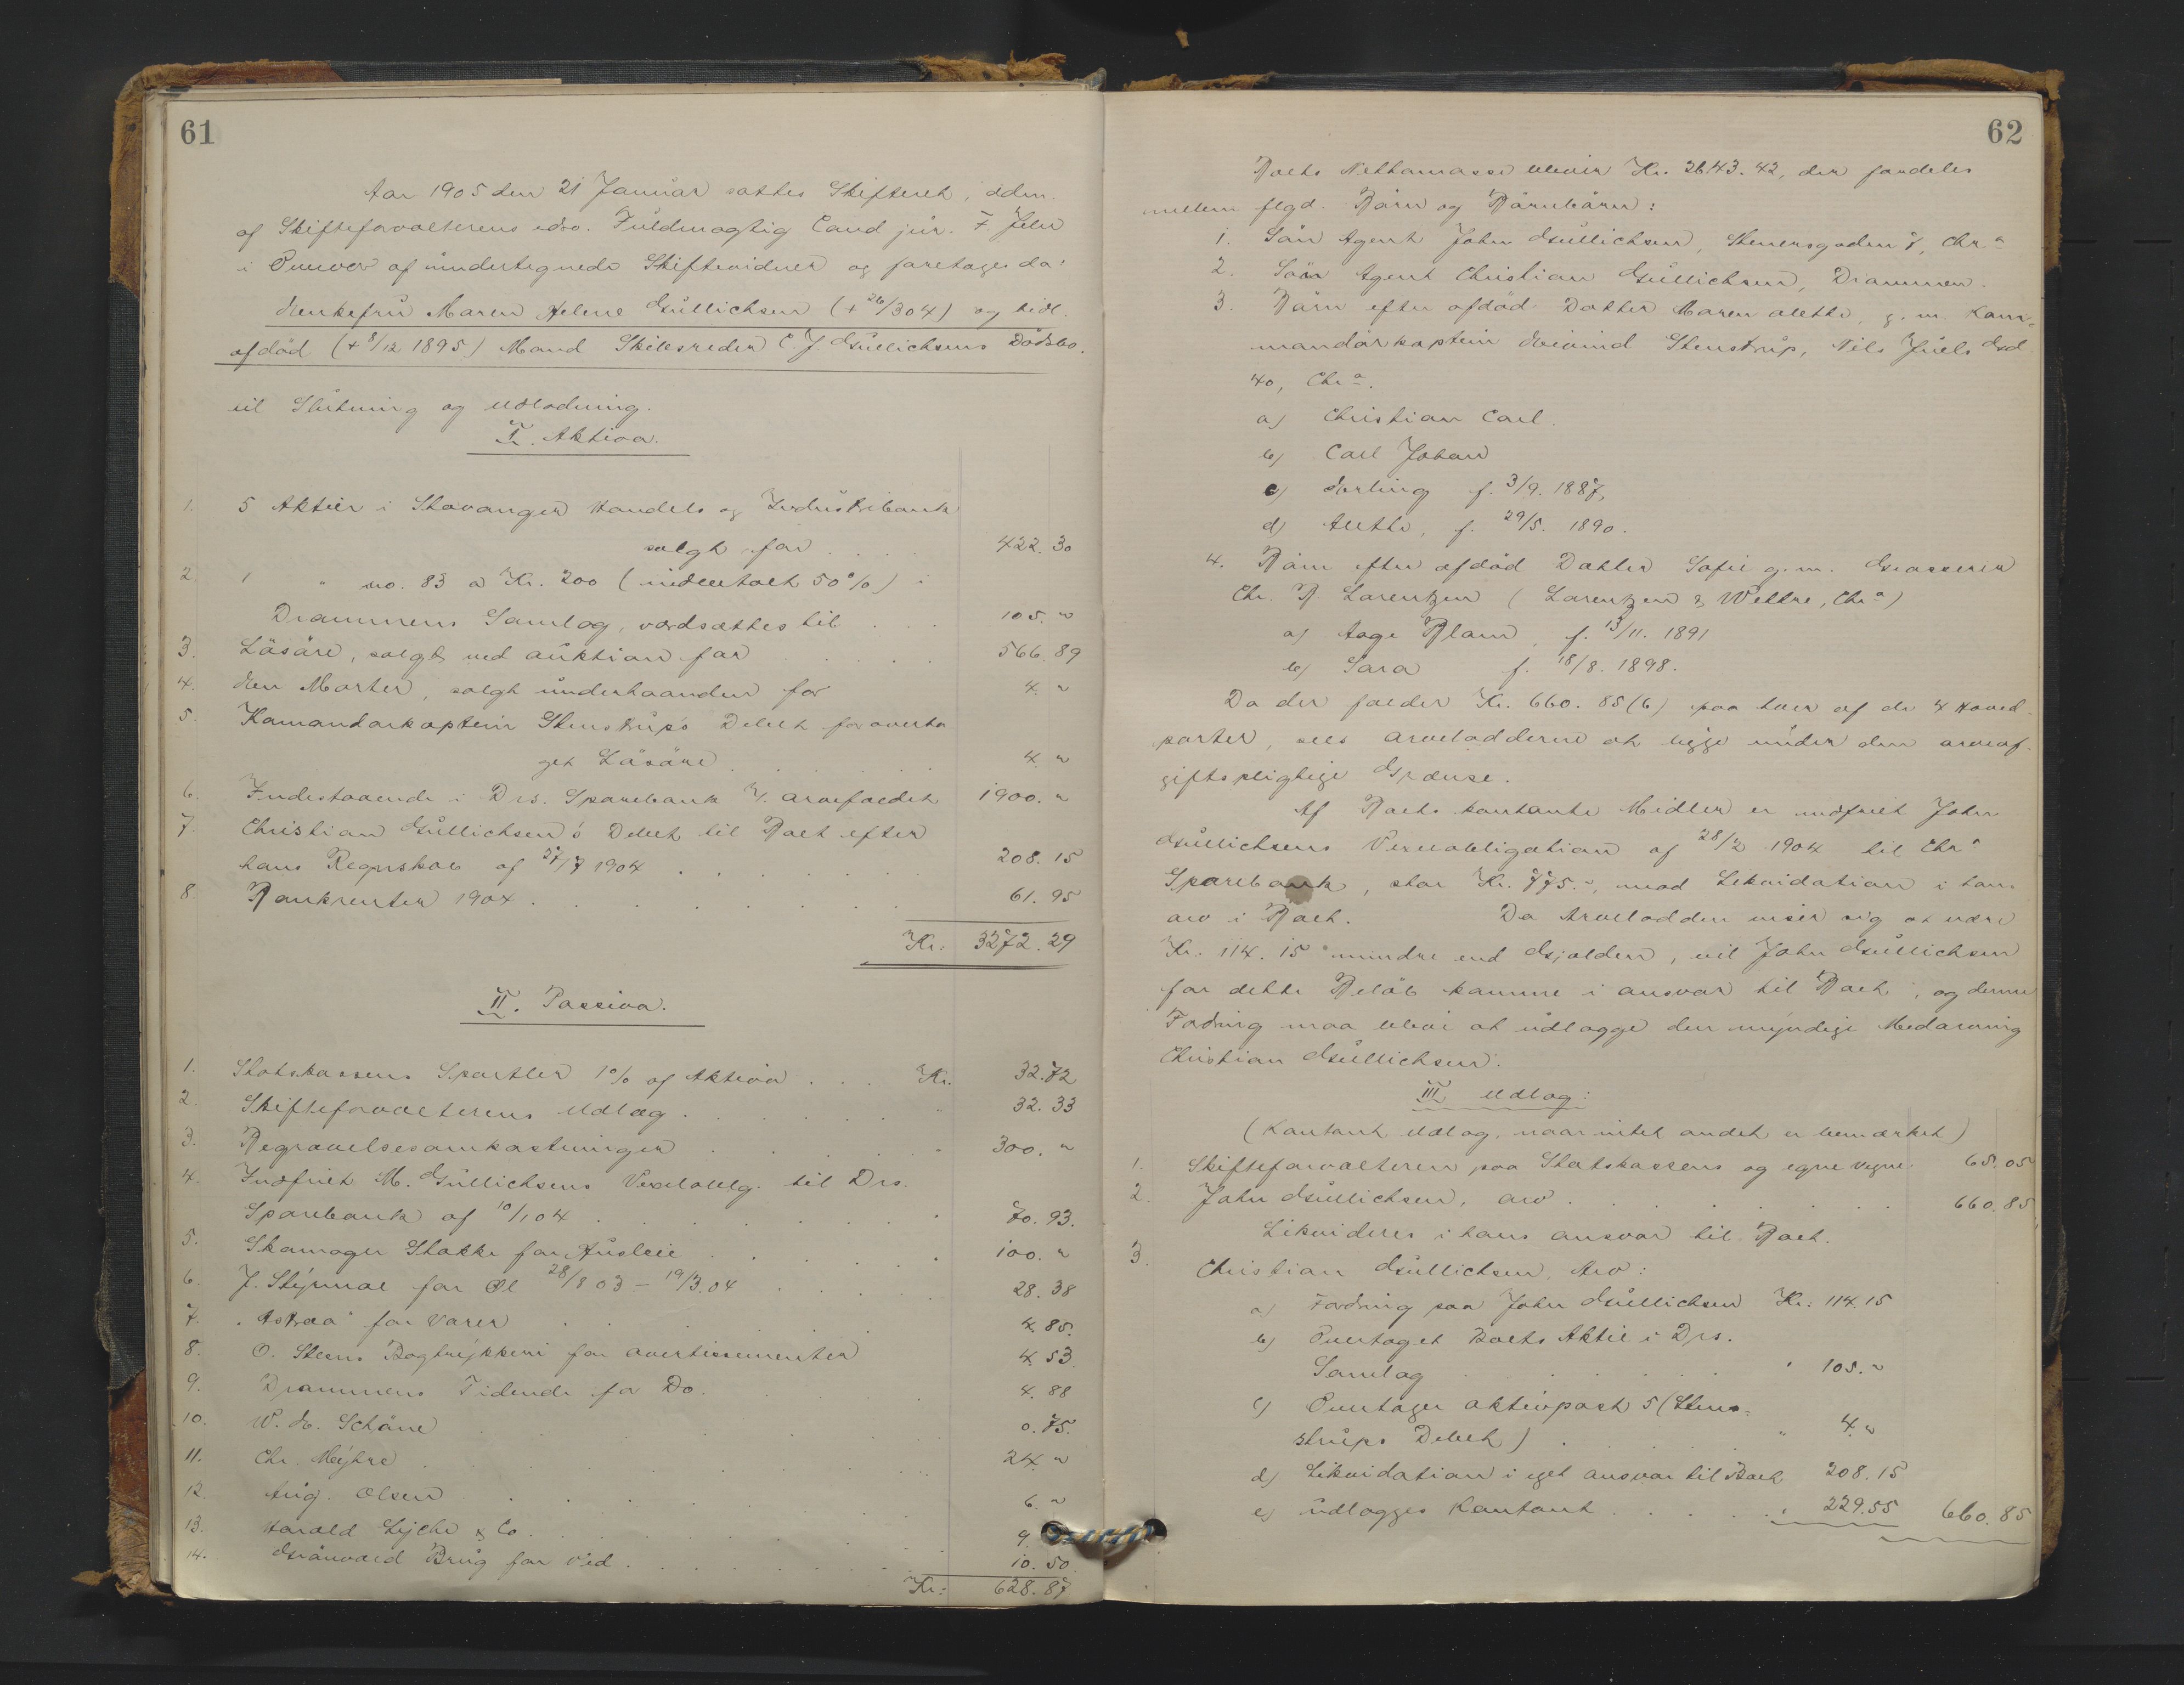 61
Aar 1905 den 21 Januar sattes Skifteret, adm.
af Skifteforvalterens edsv. Fuldmægtig Cand jur. F
i Overvær af undertegnede Skiftevidner og foretoges da:
Enkefru Maren Helene Gullichsen (+ 26/3 04) og tidl.
afdød (+ 8/12 1895) Mand Skibsreder C. J. Gullichsens Dødsbo.
til Slutning og Udlodning.
I. Aktiva.
1. 5 Aktier i Stavanger Handels og Industribank
solgt for . . . 422.30
2. 1 " no. 83 a Kr. 200 (indbetalt 50%) i
Drammens Samlag, værdsættes til . . . 105. "
3. Løsøre, solgt ved auktion for . . . . . 566.89
4. En Morter, solgt underhaanden for 4. "
5. Komandørkaptein Stenstrup's Debet for overta
get Løsøre . . . . . 4. "
6. Indestaaende i Drs. Sparebank v. arvefaldet 1900. "
7. Christian Gullichsen's Debet til Boet efter
hans Regnskab af 27/7 1904 . . . . . 208.15
8. Bankrenter 1904 . . . . . . . 61.95
Kr. 3272.29
II. Passiva.
1. Statskassens Sportler 1% af Aktiva . . . Kr. 32.72
2. Skifteforvalterens Udlæg . . . . . " 32.33
3. Begravelsesomkostninger . . . . " 300. "
4. Indfriet M. Gullichsens Vexeloblg. til Drs.
Sparebank af 10/1 04 . . . . . . 70.93.
5. Skomager Stakke for Husleie . . . . 100. "
6. J. Styrmoe for Øl 28/8 03 - 19/3.04 . . . . 28.38
7. "Astræa" for Varer . . . . . 4.85.
8. O. Steens Bogtrykkeri for avertissementer 4.53.
9. Drammens Tidende for Do. . . . . 4.88
10. W. E. Schøne . . . . . 0.75.
11. Chr. Meyhre . . . . . . 24 "
12. Aug. Olsen . . . . . . 6. "
13. Harald Lyche & Co. . . . . . 9.
14. Grønvold Brug for Ved . . . . . 10.50
Kr: 628.87
62
Boets Nettomasse bliver Kr. 2643.42, der fordeles
mellem flgd. Børn og Børnebørn:
1. Søn Agent John Gullichsen, Stenersgaden 7, Chr.a
2. Søn Agent Christian Gullichsen, Drammen.
3. Børn efter afdød Datter Maren Alette, g. m. Kom-
mandørkaptein Eivind Stenstrup, Nils Juels Gd
40, Chr.a.
a) Christian Carl.
b) Carl Johan
c) Erling f. 3/9. 1887,
d) Alette, f. 29/5. 1890.
4. Børn efter afdød Datter Sofie g. m. Grosserer
Chr. B. Lorentzen (Lorentzen & Wettre, Chr.a)
a) Aage Blom f. 13/11. 1891
b) Sara f. 18/8. 1898.
Da der falder Kr. 660.85(6) paa hver af de 4 Hoved-
parter, sees Arvelodderne at ligge under den arveaf-
giftspligtige Grænse.
Af Boets kontante Midler er indfriet John
Gullichsens Vexelobligation af 28/2 1904 til Chr.a
Sparebank, stor Kr. 775. ", mod Likvidation i hans
arv i Boet. Da Arvelodden viser sig at være
Kr. 114.15 mindre end Gjælden, vil John Gullichsen
for dette Beløb komme i ansvar til Boet, og denne
Fodring maa blive at udlægge den myndige Medarving
Christian Gullichsen.
III Udlæg:
(Kontant Udlæg, naar intet andet er bemærket)
1. Skifteforvalteren paa Statskassens og egne Vegne 65.05
2. John Gullichsen, arv . . . . . . . 660.85
Likvideres i hans ansvar til Boet.
3. Christian Gullichsen, Arv:
a) Fordring paa John Gullichsen Kr: 114.15
b) Overtaget Boets Aktie i Drs.
Samlag . . . . . " 105. "
c) Overtager aktivpost 5 (Sten-
strups Debet) . . . . . " 4. "
d) Likvidation i eget ansvar til Boet 208.15
e) udlægges Kontant . . . . . 229.55 660.85